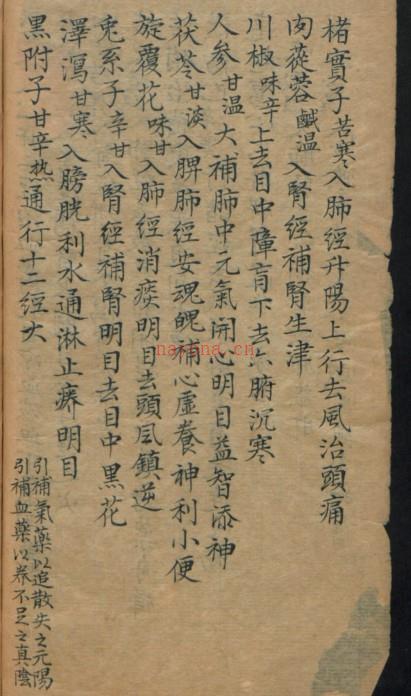 楮實子苦寒入肺經升陽上行去風治頭痛
肉蓯蓉鹹温入腎經補腎生津
川椒味辛上去目中障肓下去六腑沉寒
人参甘温大補肺中元氣開心明目益智添神
茯苓甘淡入脾肺經安魂魄補心虛養神利小便
旋覆花味甘入肺經消痰明目去頭风鎮逆
兎糸子辛甘入腎經補腎明目去目中黑花
澤瀉甘寒入膀胱利水通淋止瘆明目
黑附子甘辛热通行十二經大
引補氣藥以追散失之元陽
引補血藥以养不足之真陰
nayona.cn